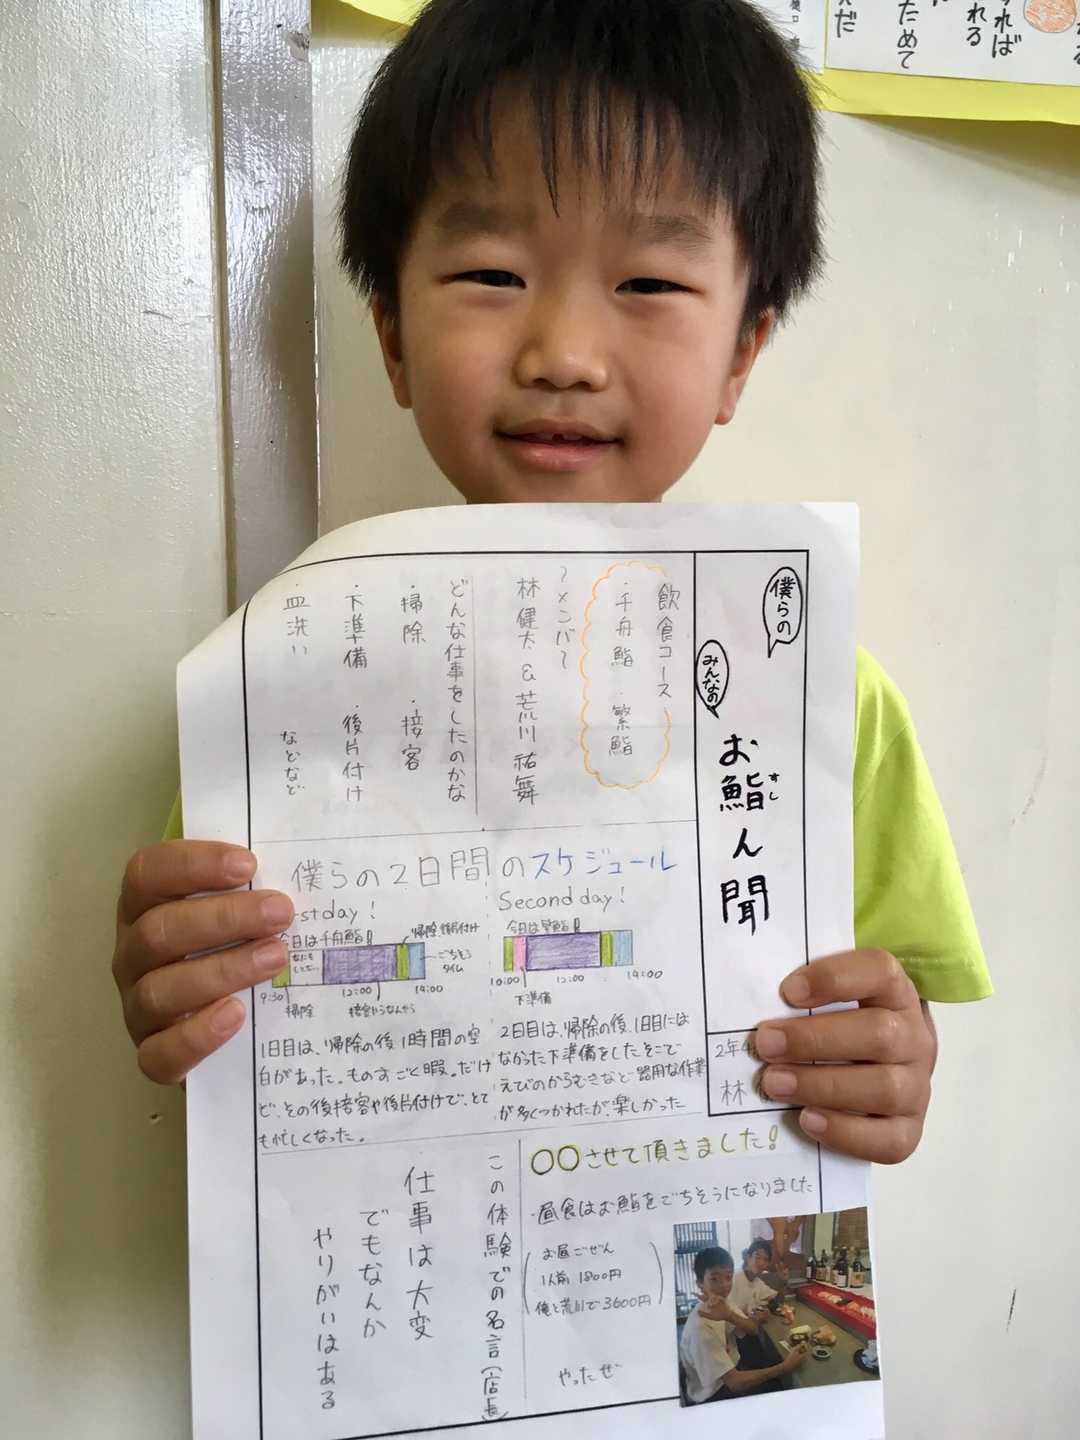 僕らの
みんなの
お鮨ん聞
すし
2年4
林
飲食コース
・千舟鮨 ・繁鮨
〜メンバー〜
林健太 & 荒川祐舞
どんな仕事をしたのかな
・掃除 ・接客
・下準備 ・後片付け
・皿洗い などなど
僕らの2日間のスケジュール
st day!
今日は千舟鮨!!
掃除、後片付け
ごちそう
タイム
9:30 12:00 14:00
掃除
Second day!
10:00 12:00 14:00
下準備
1日目は、掃除の後1時間の空
白があった。ものすごく暇。だけ
ど、その後接客や後片付けで、とて
も忙しくなった。
2日目は、掃除の後、1日目には
なかった下準備をした。そこで
えびのからむきなど器用な作業
が多くつかれたが、楽しかった
〇〇させて頂きました!
・昼食はお鮨をごちそうになりました
お昼ごぜん
1人前 1800円
俺と荒川で3600円
やったぜ
この体験での名言(店長)
仕事は大変
でもなんか
やりがいはある
れば
れる
ためて
だ